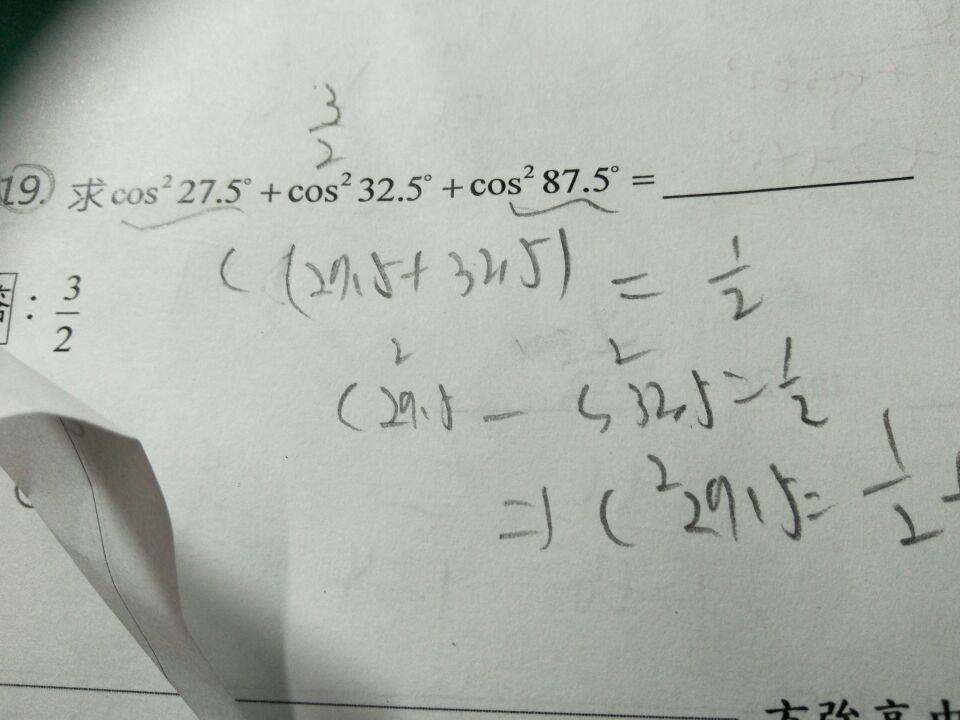 3/2
19. 求 cos² 27.5° + cos² 32.5° + cos² 87.5° = ________
( (27.5 + 32.5) = 1/2
: 3/2
C² 27.5 - S² 32.5 = 1/2
=) C² 27.5 = 1/2